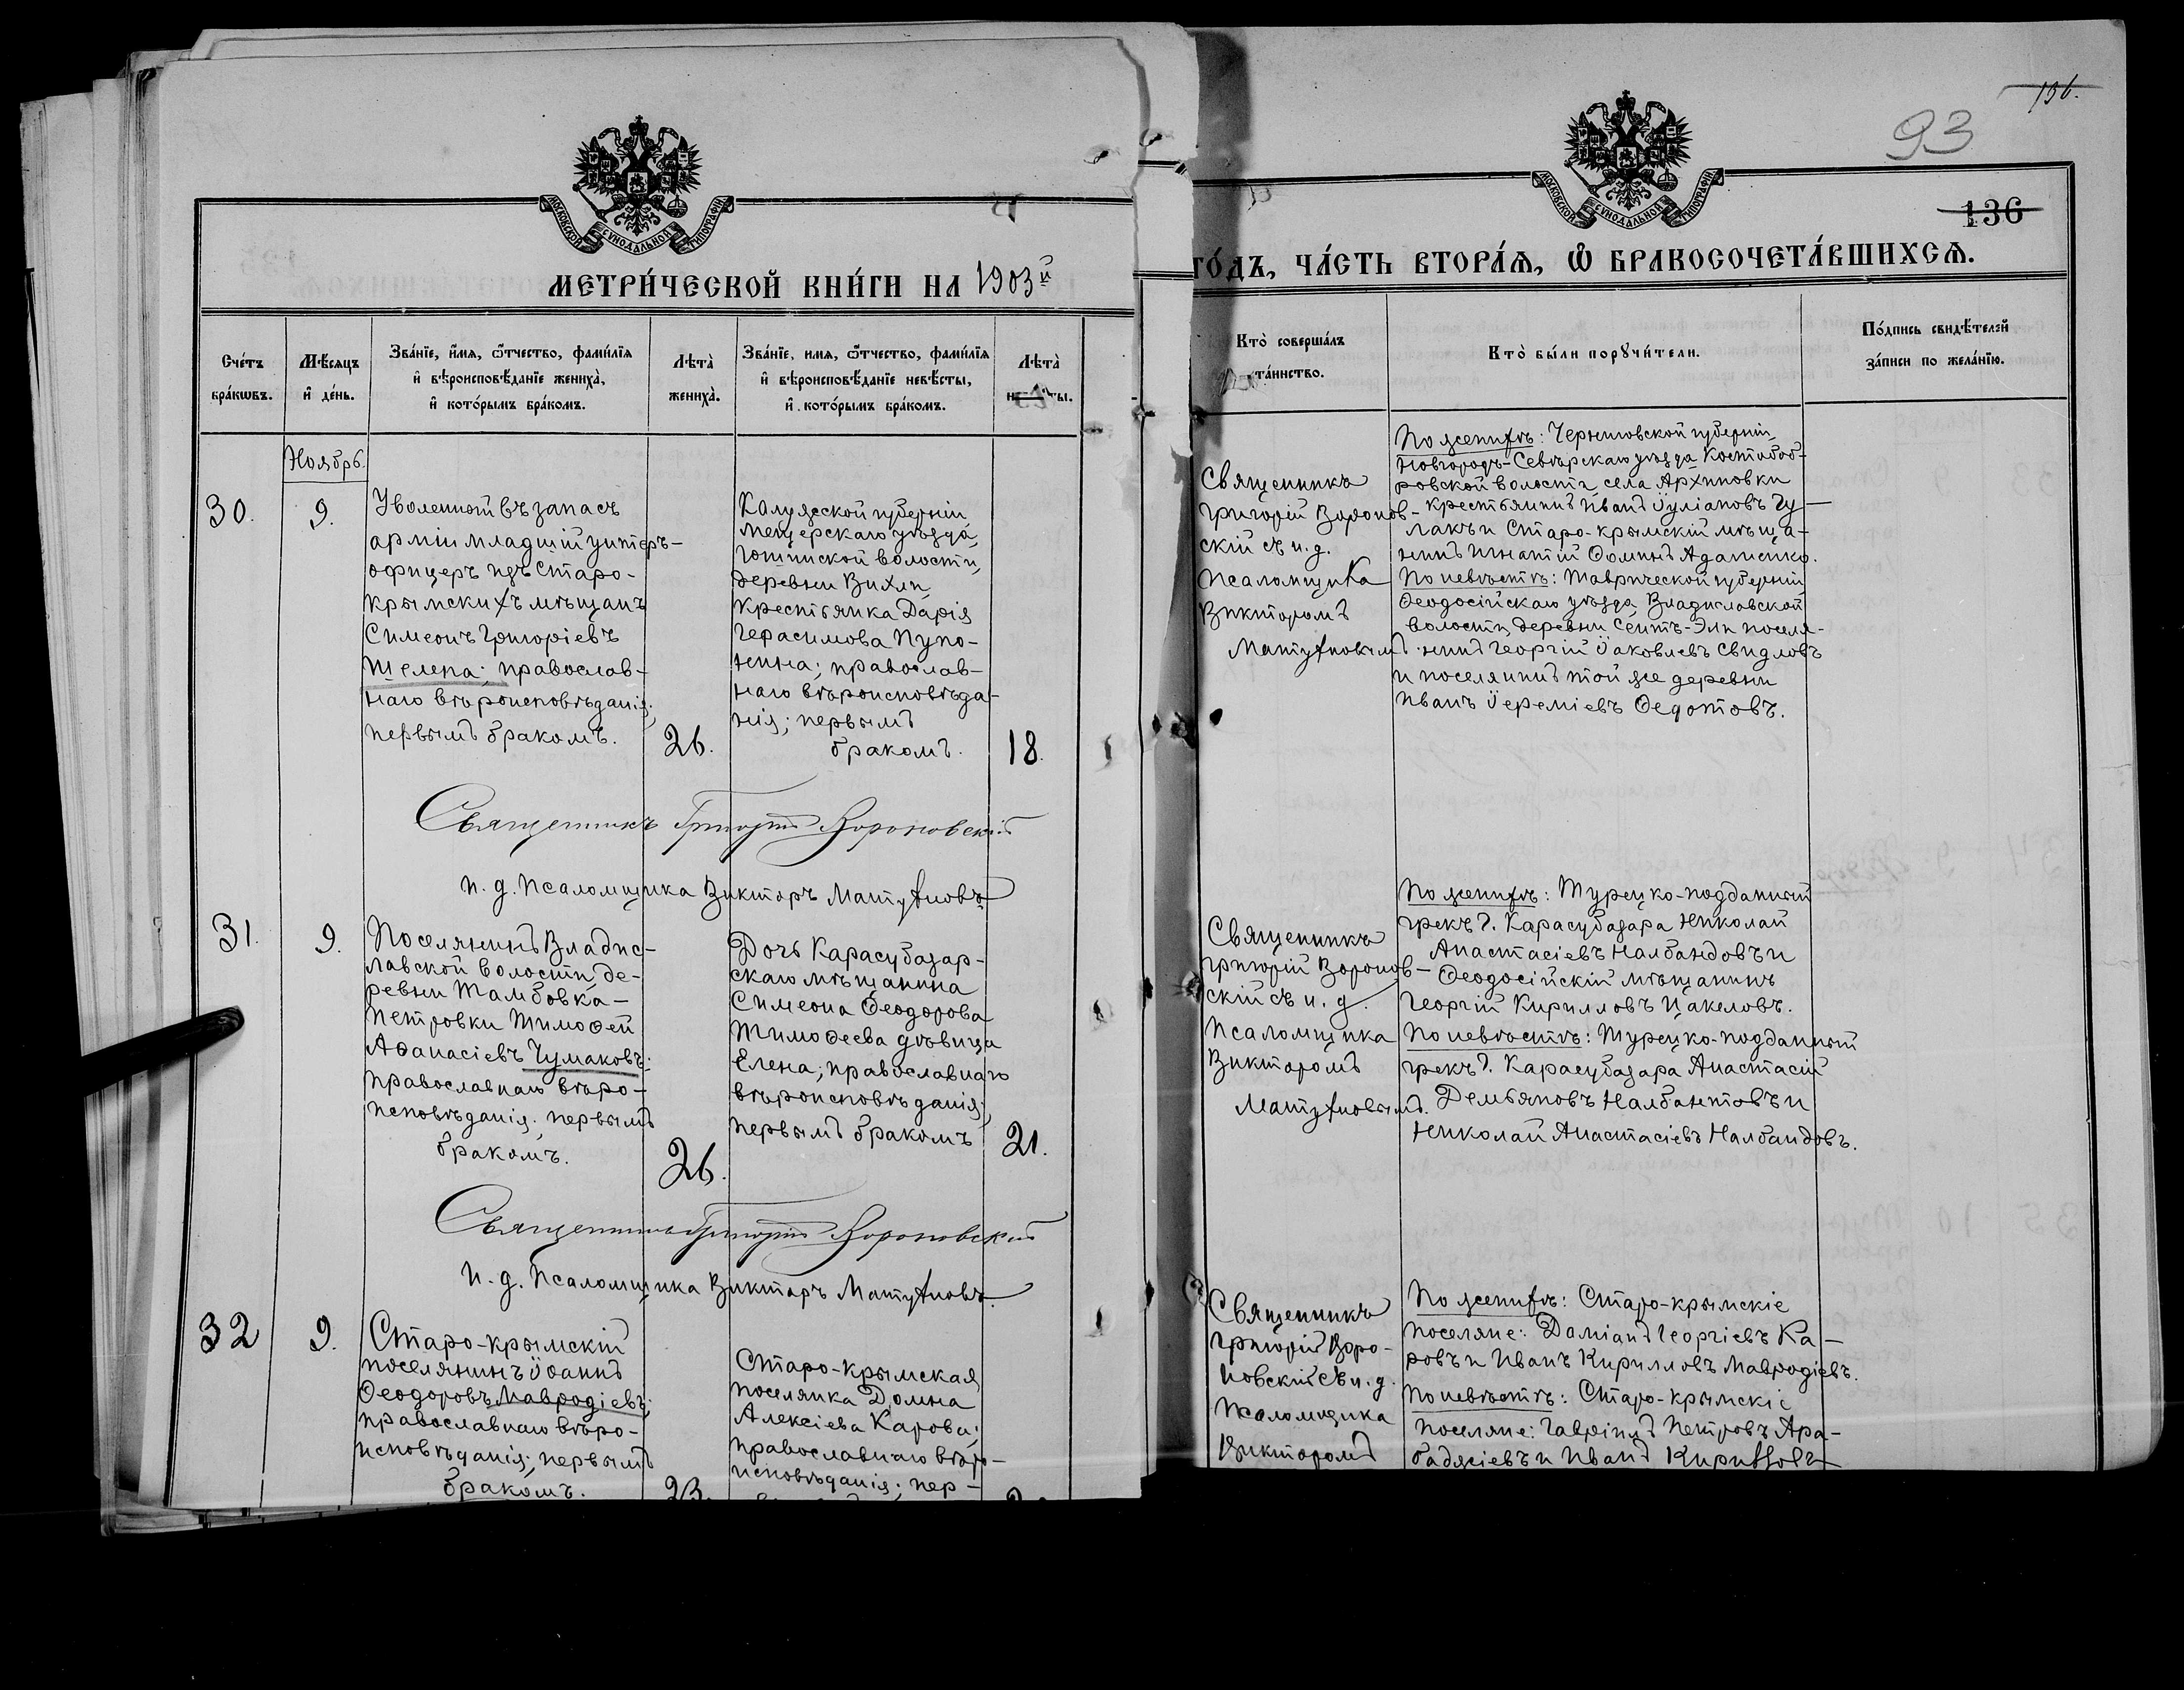 136.
93
136
МОСКОВСКОЙ СѴНОДАЛЬНОЙ ТИПОГРАФІИ
МОСКОВСКОЙ СѴНОДАЛЬНОЙ ТИПОГРАФІИ
МЕТРИ́ЧЕСКОЙ КНИ́ГИ НА 1903й
ГО́ДЪ, ЧА́СТЬ ВТОРА́Ѧ, Ѿ БРАКОСОЧЕТА́ВШИХСѦ.
Сче́тъ
бра́кѡвъ.
Мѣ́сяцъ
и҆ де́нь.
Зва́нїе, и҆́мя, ѻ҆́тчество, фами́лїя
и҆ вѣроисповѣ́данїе жениха̀,
и҆ кото́рымъ бра́комъ.
Лѣта̀
жениха̀.
Зва́нїе, имя, ѻ҆́тчество, фами́лїя
и҆ вѣроисповѣ́данїе невѣ́сты,
и҆ кото́рымъ бра́комъ.
Лѣта̀
Кто̀ соверша́лъ
та́инство.
Кто̀ бы́ли порꙋчи́тели.
По́дпись свидѣ́телей
за́писи по жела́нїю.
Ноябрь.
30.
9.
Уволенный въ запасъ
арміи младшій унтеръ-
офицеръ изъ Старо-
крымскихъ мѣщанъ
Симеонъ Григоріевъ
Шелепа; православ-
наго вѣроисповѣданія;
первымъ бракомъ.
26.
Калужской губерніи
Мещерскаго уѣзда,
волости,
деревни Вихли
крестьянка Дарія
Герасимова Пупо-
нина; православ-
наго вѣроисповѣда-
нія; первымъ
бракомъ.
18.
Священникъ
Григорій Воронов-
скій съ и. д.
Псаломщика
Викторомъ
Матухновымъ
По женихѣ: Черниговской губерніи,
Новгородъ-Сѣверскаго уѣзда Костобоб-
ровской волости, села Архиповки
крестьянинъ Иванъ Іуліановъ Гу-
лакъ и Старо-крымскій мѣща-
нинъ Игнатій Ѳоминъ Адаменко.
По невѣстѣ: Таврической губерніи
Ѳеодосійскаго уѣзда Владиславской
волости, деревни Сеитъ-Эли поселя-
нинъ Георгій Іаковлевъ Свидловъ
и поселянинъ той же деревни
Иванъ Іереміевъ Ѳедотовъ.
Священникъ Григорій Вороновскій
И. д. Псаломщика Викторъ Матухновъ
31.
9.
Поселянинъ Владис-
лавской волости, де-
ревни Тамбовка-
Петровки Тимоѳей
Аѳанасіевъ Чумаковъ;
православнаго вѣро-
исповѣданія; первымъ
бракомъ.
26.
Дочь Карасубазар-
скаго мѣщанина
Симеона Ѳеодорова
Тимоѳеева дѣвица
Елена; православнаго
вѣроисповѣданія;
первымъ бракомъ
21.
Священникъ
Григорій Воронов-
скій съ и. д.
Псаломщика
Викторомъ
Матухновымъ.
По женихѣ: Турецко-подданный
грекъ г. Карасубазара Николай
Анастасіевъ Налбандовъ и
Ѳеодосійскій мѣщанинъ
Георгій Кирилловъ Цакеловъ.
По невѣстѣ: Турецко-подданный
грекъ г. Карасубазара Анастасій
Демьяновъ Налбантовъ и
Николай Анастасіевъ Налбандовъ.
Священникъ Григорій Вороновскій
И. д. Псаломщика Викторъ Матухновъ.
32
9.
Старо-крымскій
поселянинъ Іоаннъ
Ѳеодоровъ Мавродіевъ;
православнаго вѣро-
исповѣданія; первымъ
бракомъ.
23.
Старо-крымская
поселянка Домна
Алексіева Карова;
православнаго вѣро-
исповѣданія; пер-
Священникъ
Григорій Воро-
новскій съ и. д.
Псаломщика
Викторомъ
По женихѣ: Старо-крымскіе
поселяне: Даміанъ Георгіевъ Ка-
ровъ и Иванъ Кирилловъ Мавродіевъ.
По невѣстѣ: Старо-крымскіе
поселяне: Гавріилъ Петровъ Ара-
баджіевъ и Иванъ Кирилловъ